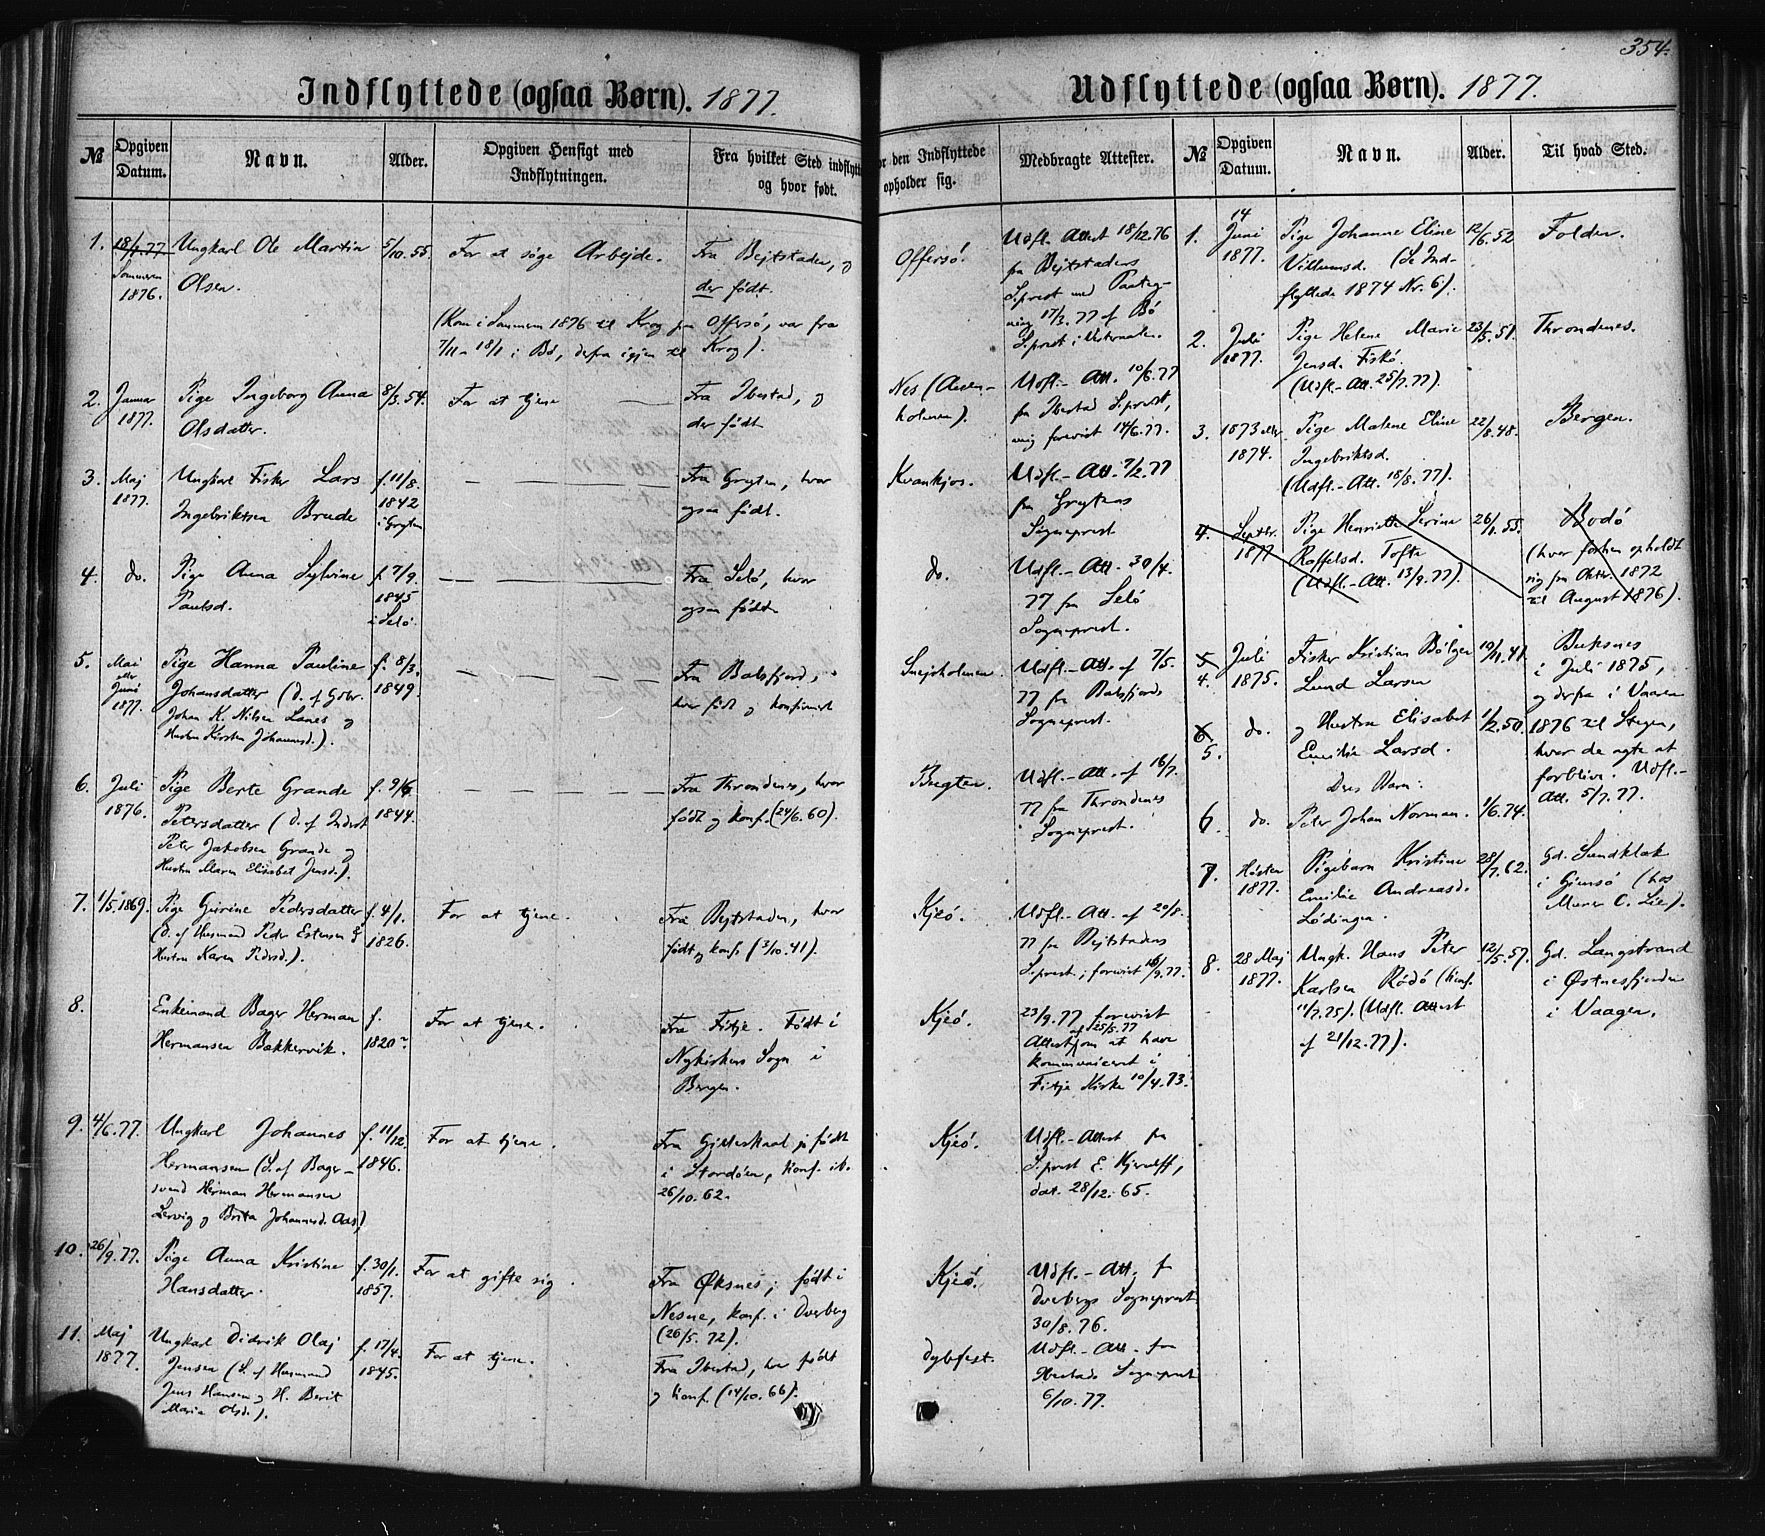 354.
Indflyttede (ogsaa Børn). 1877.
№
Opgiven Datum.
Navn.
Alder.
Opgiven Hensigt med Indflytningen.
Fra hvilket Sted indflytt
og hvor født.
or den Indflyttede
opholder sig.
Medbragte Attester.
1. 18/1.77 Sommeren 1876.
Ungkarl Ole Martin
Olsen.
5/10.55.
For at søge Arbejde.
Fra Bejtstaden, og
der født.
(Kom i Sommeren 1876 til Krog paa Offersø, var fra
7/11 - 18/1 i Bø, derfra igjen til Krog).
Offersø.
Udfl. Attest 18/12.76
fra Bejtstadens
S.prest med Paateg-
ning 17/3.77 af Bø
S.prest i Vesteraalen.
2. Januar 1877.
Pige Ingeborg Anna
Olsdatter.
8/3.54.
For at tjene
Fra Ibestad, og
der født
Nes (
holmen).
Udfl.-Att. 10/6.77
fra Ibestad S.prest,
mig forevist 14/6.77.
3. Maj 1877.
Ungkarl Fisker Lars
Ingebriktsen Brude
f. 11/8.
1842
i Gryten
Fra Gryten, hvor
ogsaa født.
Kvankjos.
Udfl.-Att. 7/2.77
fra Grytens
Sogneprest
4. do.
Pige Anna Sylvine
Paulsd.
f. 7/9.
1845
i Selø.
Fra Selø, hvor
ogsaa født.
do.
Udfl.-Att. 30/4.
77 fra Selø
Sogneprest.
5. Mai eller Juni 1877.
Pige Hanna Pauline
Johansdatter (D. af Gbr.
Johan K. Nilsen Lanes og
Hustru Kirsten Johannesd.).
f. 8/3.
1849.
Fra Balsfjord,
hvor født og konfirmeret
Snejsholmen.
Udfl.-Att. af 7/5.
77 fra Balsfjords
Sogneprest.
6. Juli 1876.
Pige Berte Grande
Petersdatter (D. af Inderst
Peter Jakobsen Grande og
Hustru Maren Elisabet Jensd.).
f. 9/6
1844.
Fra Throndenes, hvor
født og konf. (24/6.60).
Bugten.
Udfl.-Att. af 16/7.
77 fra Throndenes
Sogneprest.
7. 1/5.1869.
Pige Gurine Pedersdatter
(D. af Husmand Peder Estensen og
Hustru Karen Pedersd.).
f. 4/1.
1826.
For at tjene.
Fra Bejtstaden, hvor
født og konf. (3/10.41).
Kjeø.
Udfl.-Att. af 20/8.
77 fra Bejtstadens
S.prest; forevist 16/9.77.
8.
Enkemand Bager Herman
Hermansen Bækkervik.
f.
1820?
For at tjene.
Fra Fitje. Født i
Nykirkens Sogn i
Bergen.
Kjeø.
23/9.77 forevist
Attest af 25/5.77 om at have
kommuniceret i
Fitje Kirke 10/4.73.
9. 4/6.77.
Ungkarl Johannes
Hermansen (S. af Bager-
svend Herman Hermansen
Lervig og Brita Johannesd. Aas)
f. 11/12.
1846.
For at tjene.
Fra Gildeskaal; født
i Stordøen, konf. ib.
26/10.62.
Kjeø.
Udfl.-Attest fra
S.prest E. Kjerulff,
dat. 28/12.65.
10. 26/9.77.
Pige Anna Kristine
Hansdatter.
f. 30/1.
1857.
For at gifte sig.
Fra Øksnes; født i
Nesne, konf. i Dverberg
(26/5.72).
Kjeø.
Udfl.-Att. f
Dverbergs Sogneprest
30/8.76.
11. Maj 1877.
Ungkarl Didrik Olaj
Jensen (S. af Husmand
Jens Hansen og H. Berit
Maria Olsd.).
f. 17/4.
1845.
For at tjene.
Fra Ibestad, hvor født
og konf. (14/10.66).
Dybfest.
Udfl.-Att. fra
Ibestads Sogneprest
6/10.77.
Udflyttede (ogsaa Børn). 1877.
№
Opgiven Datum.
Navn.
Alder.
Til hvad Sted.
1. 14 Juni 1877.
Pige Johanne Eline
Villumsd. (Se Ind-
flyttede 1874 Nr. 6).
12/6.52
Folden.
2. Juli 1877.
Pige Helene Marie
Jensd. Fiskø.
(Udfl.-Att. 25/7.77).
23/5.51.
Throndenes.
3. 1873 eller 1874.
Pige Malene Eline
Ingebriktsd.
(Udfl.-Att. 18/8.77).
22/8.48.
Bergen.
4. Septbr. 1877
Pige Henriette Serine
Roffelsd. Tofte
(Udfl.-Att. 13/9.77).
26/1.55.
Bodø
(hvor forhen opholdt
sig fra Oktbr. 1872
til August 1876).
5. 4. Juli 1875.
Fisker Kristian Bølger
Lund Larsen
10/11.41.
Buksnes
i Juli 1875,
og derfra i Vaaren
1876 til Stegen,
hvor de agte at
forblive. Udfl.-
Att. 5/7.77.
6. 5. do.
og Hustru Elisabet
Emilie Larsd.
1/2.50.
Deres Barn:
6. do.
Peter Johan Norman.
1/6.74.
7. Høsten 1877.
Pigebarn Kristine
Emilie Andreasd.
Lødingen.
28/7.62.
Gd. Sundklak
i Gimsø (hos
Murer C. Lie).
8. 28 Maj 1877.
Ungk. Hans Peter
Karlsen Rødø (konf.
11/7.75). (Udfl. Attest
af 21/12.77).
12/5.57.
Gd. Langstrand
i Østnesfjorden
i Vaagen.